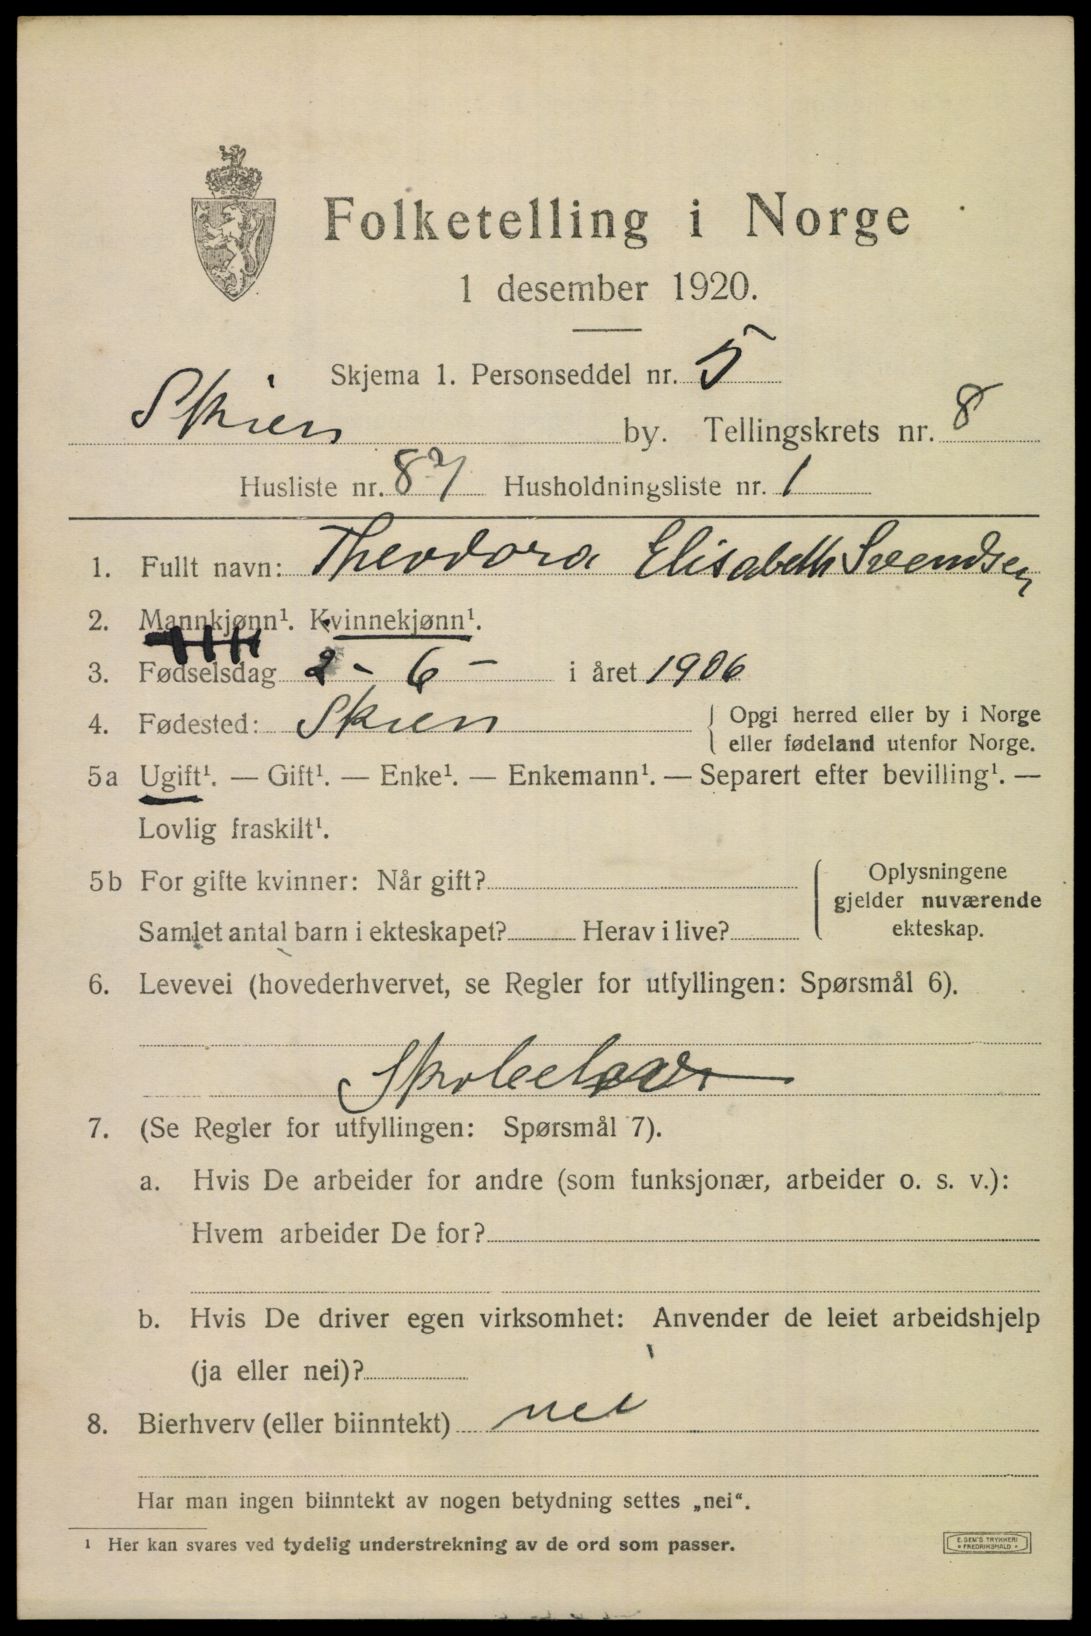 Folketelling i Norge
1 desember 1920.
Skjema 1. Personseddel nr. 5
Skien by. Tellingskrets nr. 8
Husliste nr. 87 Husholdningsliste nr. 1
1. Fullt navn: Theodora Elisabeth Svendsen
2. Mannkjønn¹. Kvinnekjønn¹.
3. Fødselsdag 2 - 6 - i året 1906
4. Fødested: Skien { Opgi herred eller by i Norge
eller fødeland utenfor Norge.
5a Ugift¹. — Gift¹. — Enke¹. — Enkemann¹. — Separert efter bevilling¹. —
Lovlig fraskilt¹.
5b For gifte kvinner: Når gift? { Oplysningene
gjelder nuværende
Samlet antal barn i ekteskapet? Herav i live? ekteskap.
6. Levevei (hovederhvervet, se Regler for utfyllingen: Spørsmål 6).
7. (Se Regler for utfyllingen: Spørsmål 7).
a. Hvis De arbeider for andre (som funksjonær, arbeider o. s. v.):
Hvem arbeider De for?
b. Hvis De driver egen virksomhet: Anvender de leiet arbeidshjelp
(ja eller nei)?
8. Bierhverv (eller biinntekt) nei
Har man ingen biinntekt av nogen betydning settes „nei“.
¹ Her kan svares ved tydelig understrekning av de ord som passer.
E. SEM'S TRYKKERI
• FREDRIKSHALD •